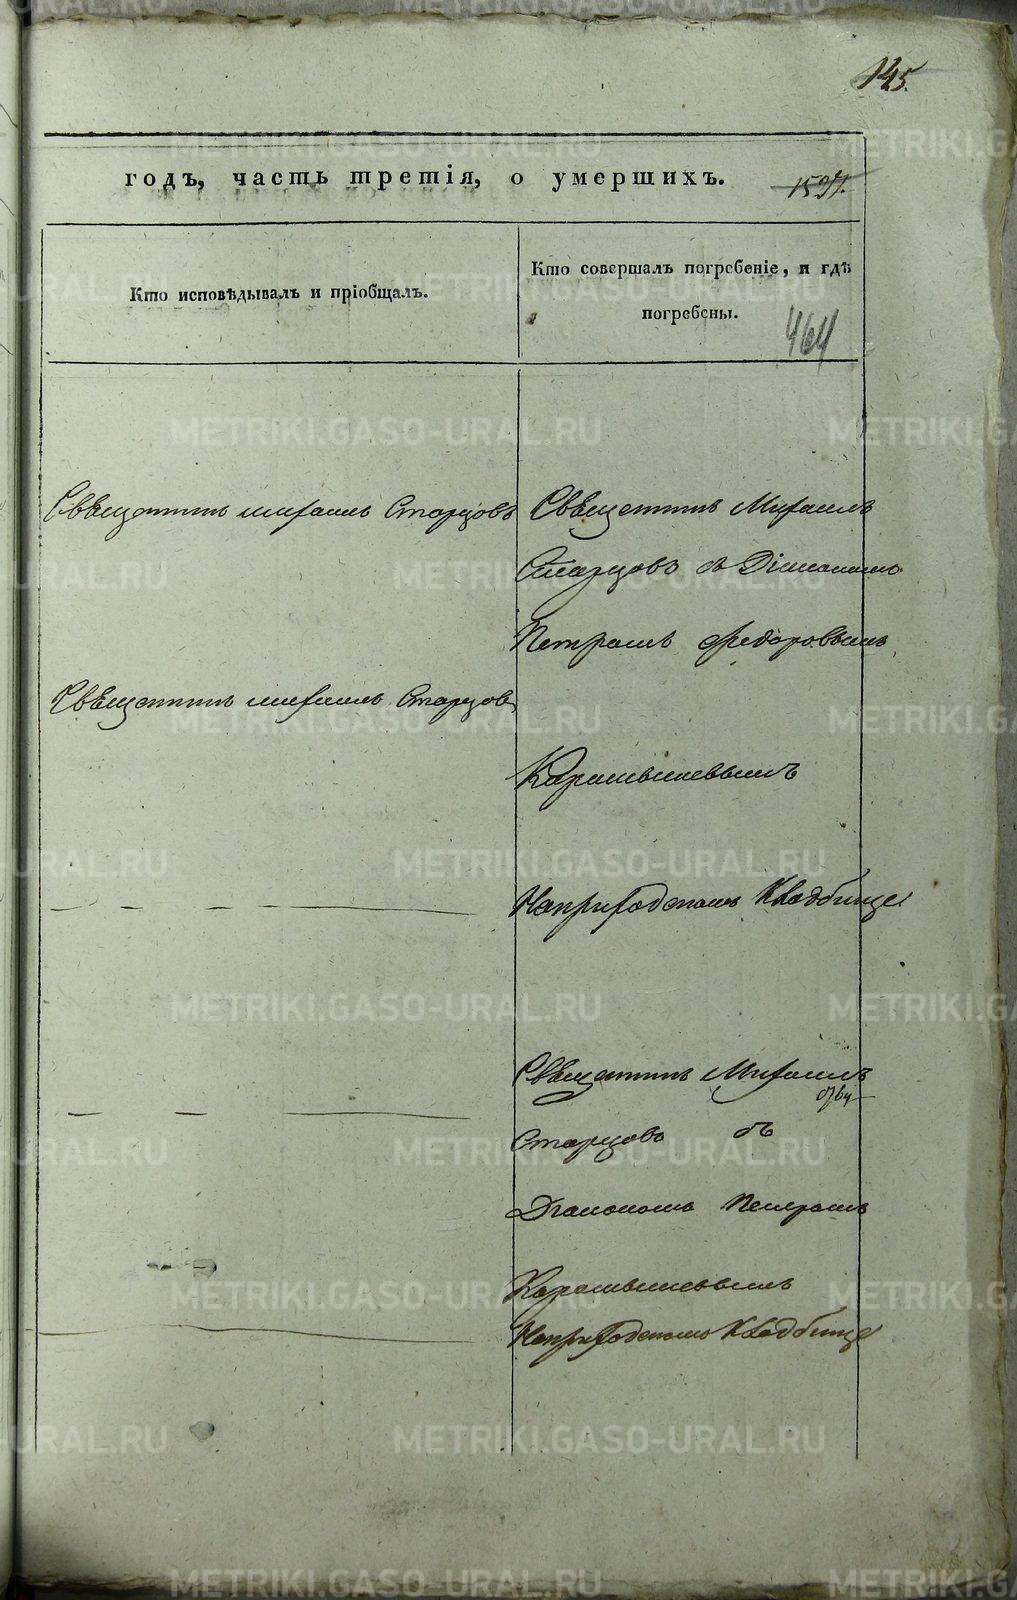 145.
годъ, часть третія, о умершихъ.
1597.
Кто исповѣдывалъ и пріобщалъ.
Кто совершалъ погребеніе, и гдѣ
погребены.
464
Священникъ Михаилъ Старцовъ
Священникъ Михаилъ
Старцовъ съ Діакономъ
Петромъ Федоровымъ
Священникъ Михаилъ Старцов
На приходскомъ Кладбище
Священникъ Михаилъ
Старцовъ съ
Діакономъ Петромъ
На приходскомъ Кладбище
METRIKI.GASO-URAL.RU